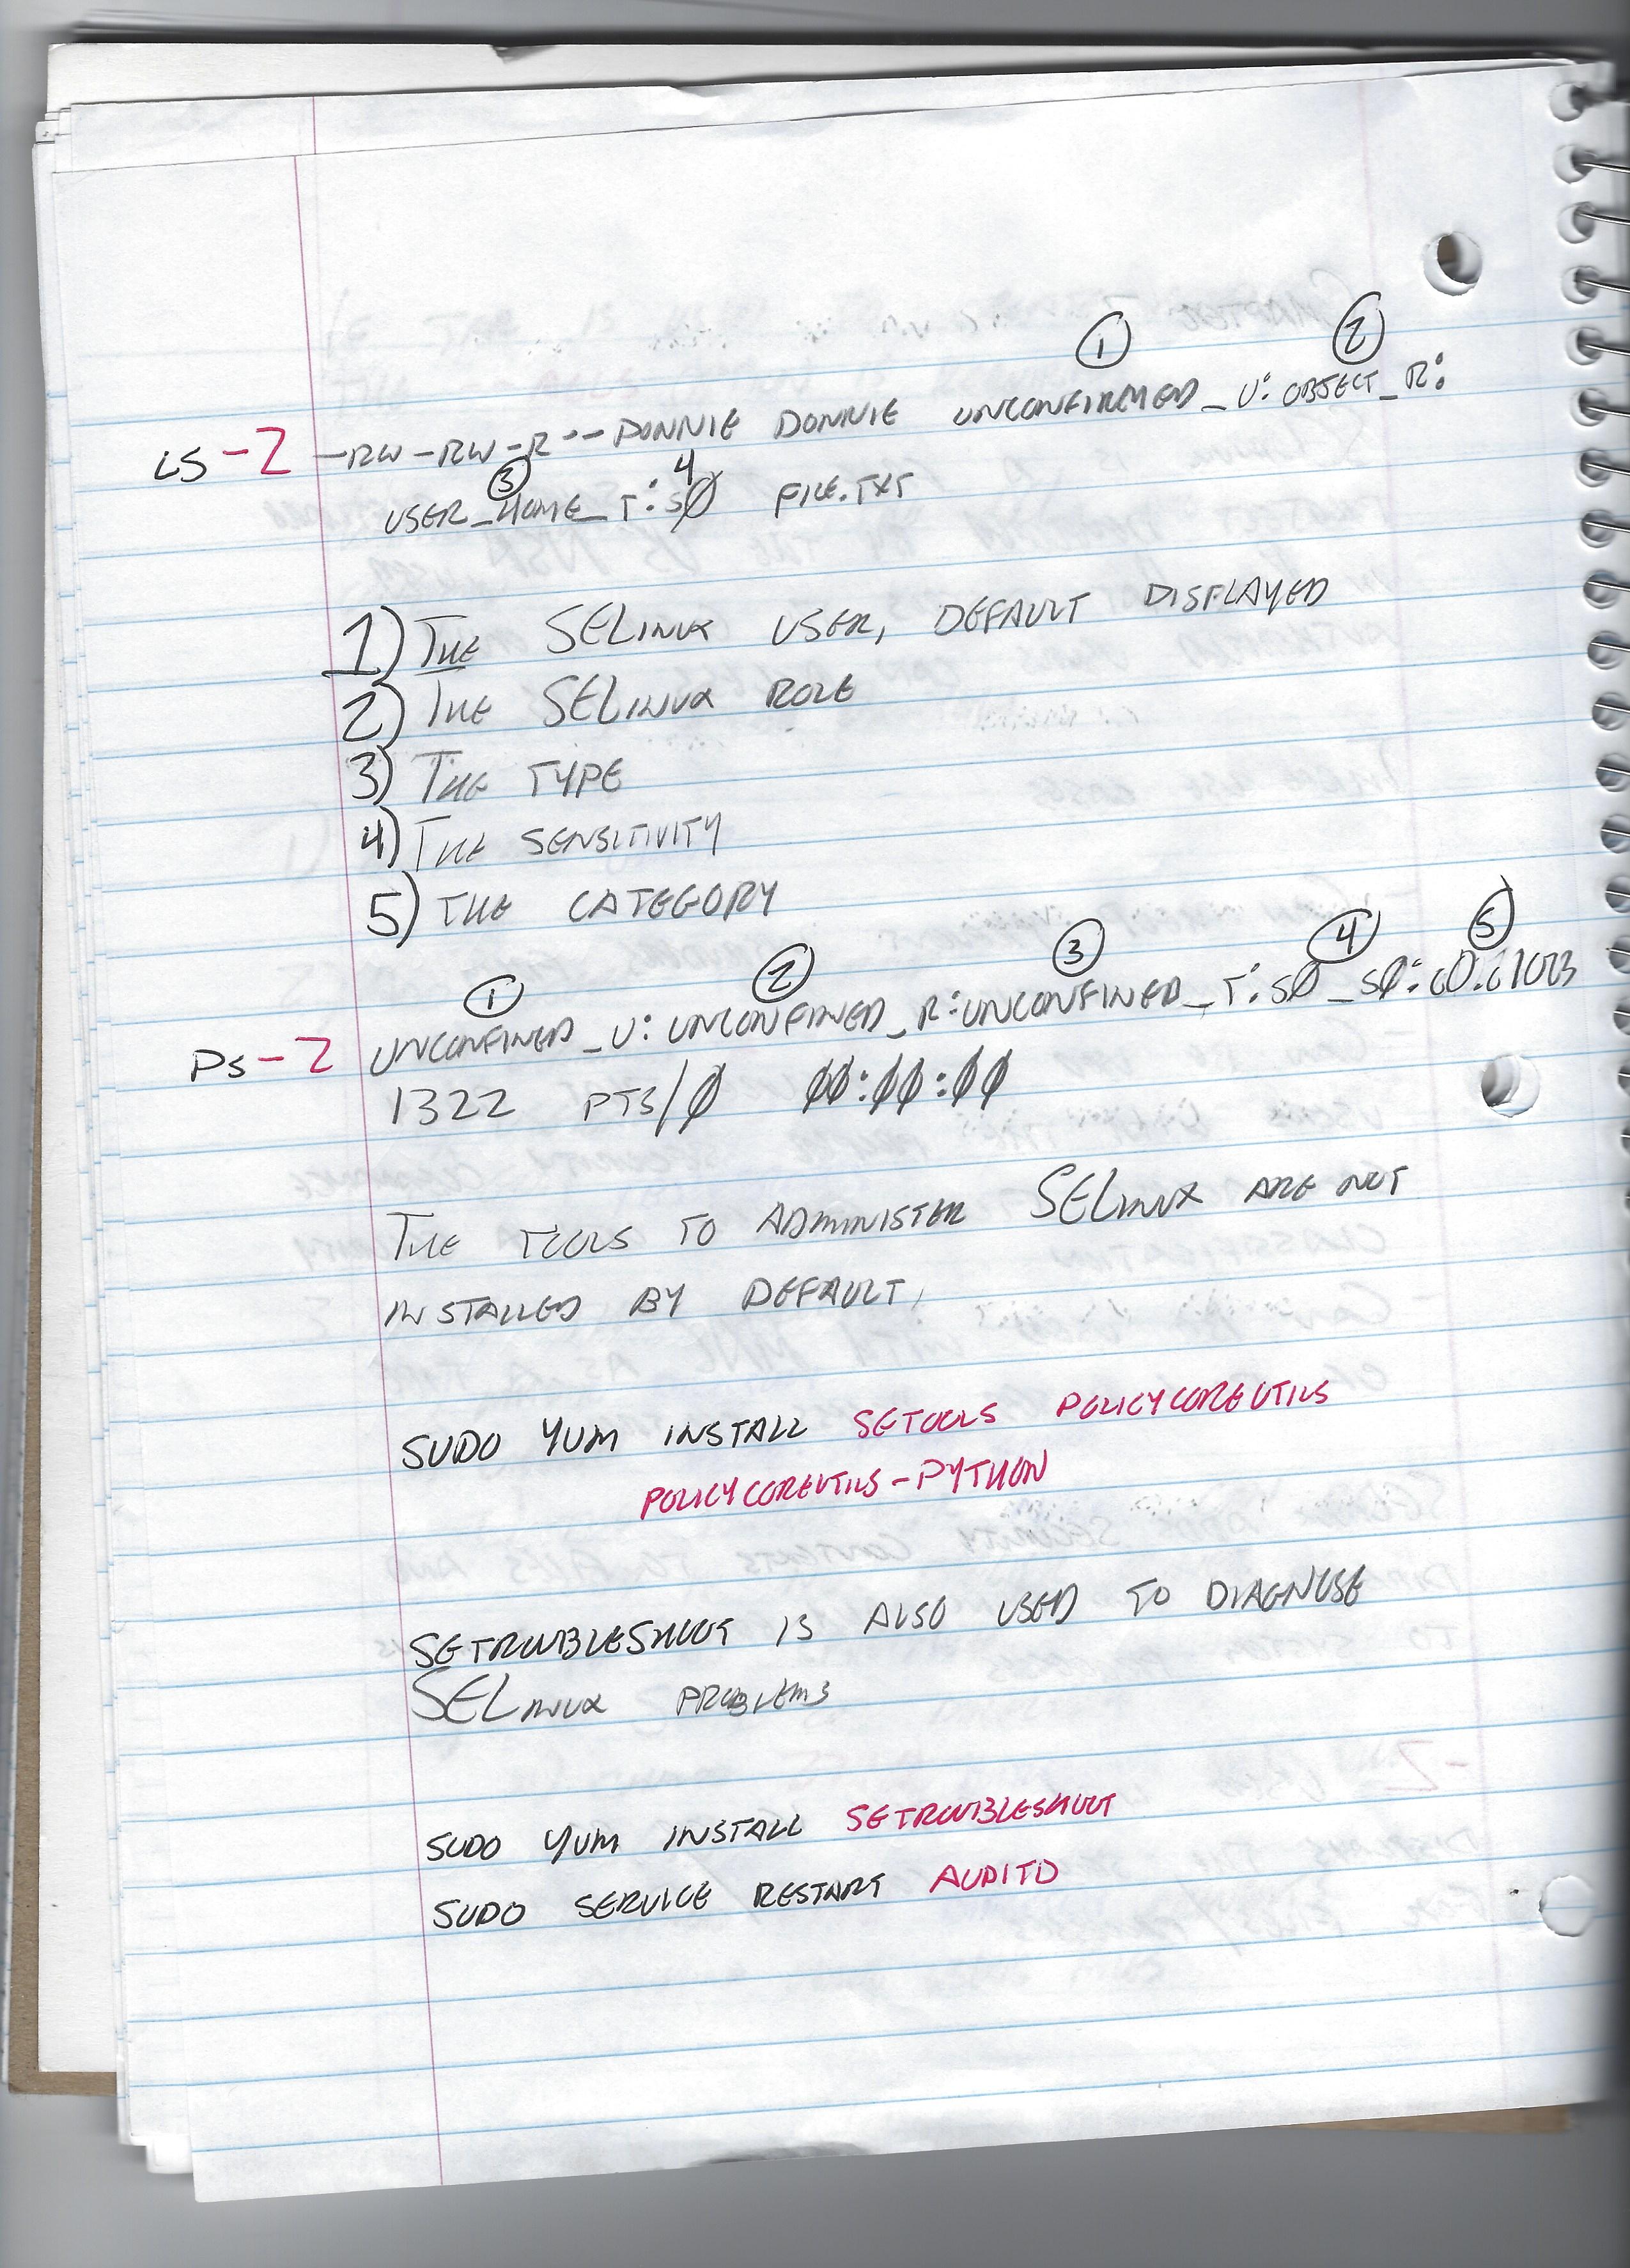 ① ②
LS -Z -RW-RW-R-- DONNIE DONNIE UNCONFIRMED_U:OBJECT_R:
③ 4
USER_HOME_T:S0 FILE.TXT
1) THE SELINUX USER, DEFAULT DISPLAYED
2) THE SELINUX ROLE
3) THE TYPE
4) THE SENSITIVITY
5) THE CATEGORY
① ② ③ ④ ⑤
PS -Z UNCONFINED_U:UNCONFINED_R:UNCONFINED_T:S0_S0:C0.C1023
1322 PTS/0 00:00:00
THE TOOLS TO ADMINISTER SELINUX ARE NOT
INSTALLED BY DEFAULT,
SUDO YUM INSTALL SETOOLS POLICYCOREUTILS
POLICYCOREUTILS-PYTHON
SETROUBLESHOOT IS ALSO USED TO DIAGNOSE
SELINUX PROBLEMS
SUDO YUM INSTALL SETROUBLESHOOT
SUDO SERVICE RESTART AUDITD